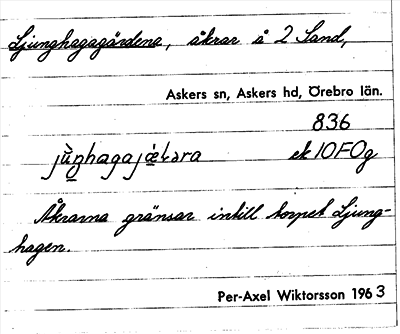 Ljunghagagärdena, åkrar å 2 Sand,
Askers sn, Askers hd, Örebro län.
836
ek 10F0g
Åkrarna gränsar intill torpet Ljung-
hagen.
Per-Axel Wiktorsson 1963